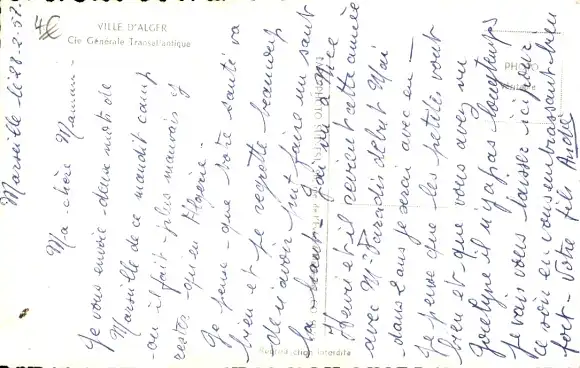 VILLE D'ALGER
Cie Générale Transatlantique
4€
PHO
Reproduction interdite
Marseille le 28-2-57
Ma chère Maman
Je vous envoie deux mots de
Marseille de ce maudit camp
ou il fait plus mauvais y
rester qu'en Algérie.
Je pense que votre santé va
bien et je regrette beaucoup
de n'avoir put faire un saut
la haut. J'ai vu à Nice
Henri et il revient cette année
avec Mr début Mai
dans 2 ans je serai avec eu
je pense que les petites vont
bien et que vous avez vu
Jocelyne il n'y a pas longtemps
je vais vous laisser ici pour
ce soir en vous embrassant bien
fort - Votre fils André